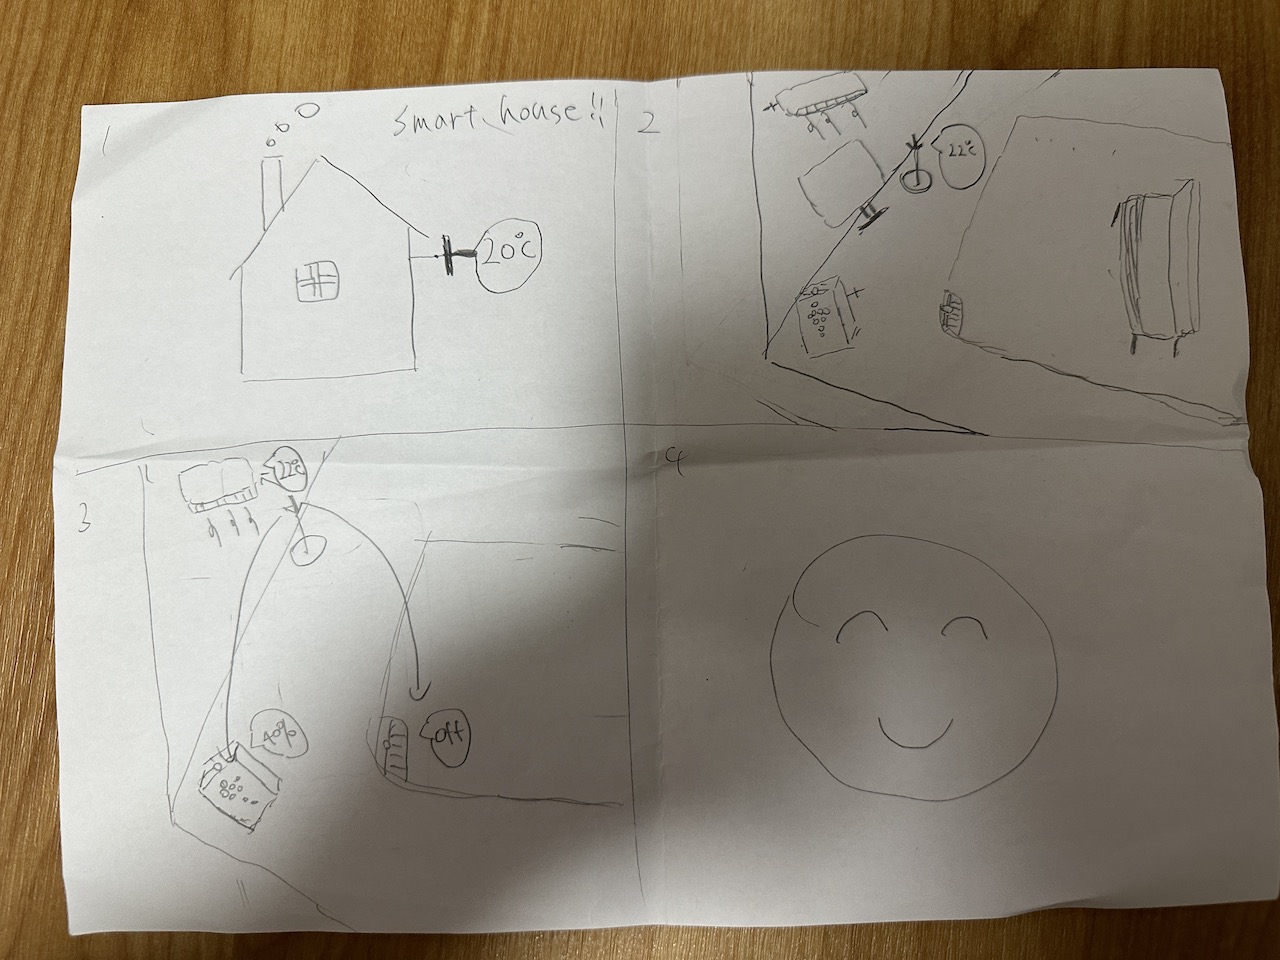 1
smart house!!
20°C
2
22°C
3
22°C
40%
off
4